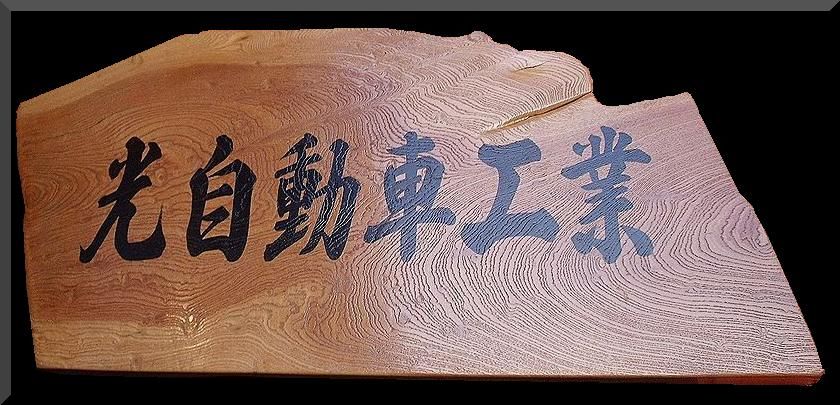 光自動車工業